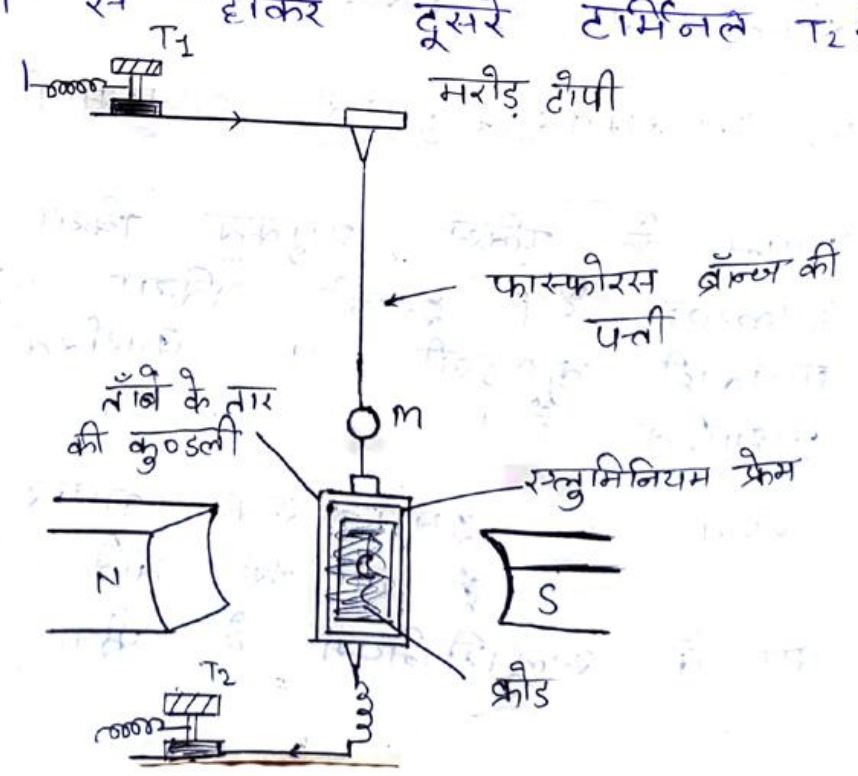 से होकर दूसरे टार्मिनल T2.
T1
मरोड़ टोपी
फास्फोरस ब्रॉन्ज की
पत्ती
ताँबे के तार
की कुण्डली
m
एल्लुमिनियम फ्रेम
N
C
S
क्रोड
T2